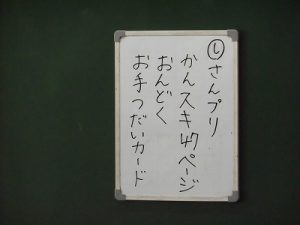 ㋛さんプリ
かんスキ47ページ
おんどく
お手つだいカード